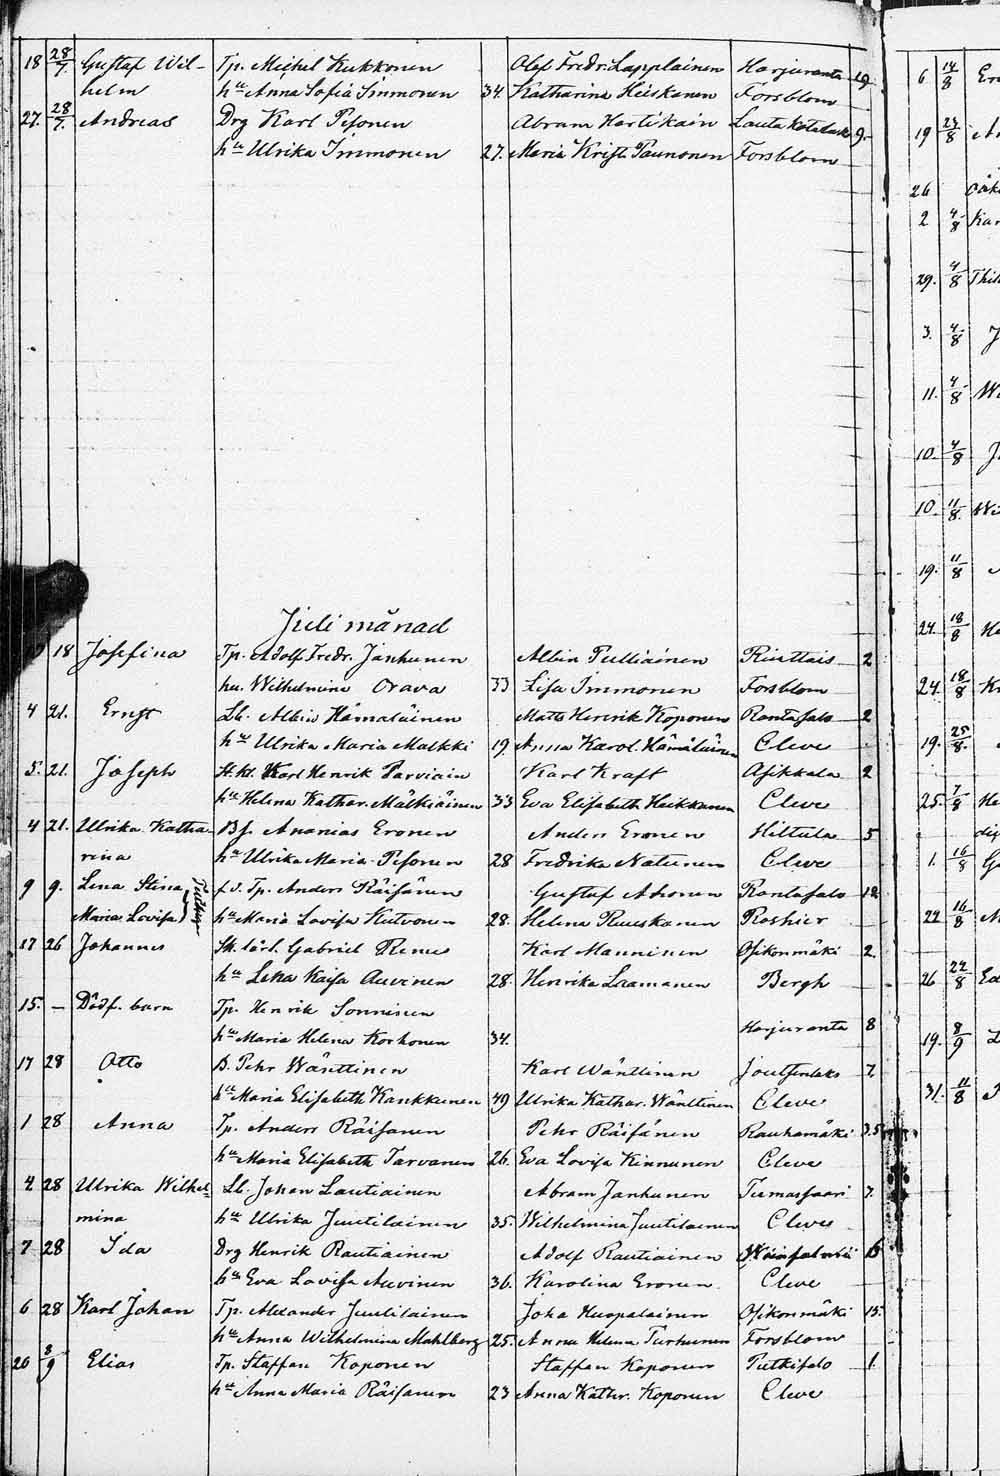 18 28/7. Gustaf Wil- Tp. Michel Kukkonen Olof Fredr. Lapplainen Harjuranta 19.
helm hu Anna Sofia Immonen 34. Katharina Heiskanen Forsblom
27. 28/7. Andreas Drg Karl Pesonen Abram Hartikain 9.
hu Ulrika Immonen 27. Maria Krist. Paunonen Forsblom
Juli månad
18 Josefina Tp. Adolf Fredr. Janhunen Albin Pulliainen Riuttais 2
hu. Wilhelmina Orava 33 Lisa Immonen Forsblom
4 21. Ernst Lb. Albin Hämäläinen Matts Henrik Koponen Rantasalo 2
hu Ulrika Maria Malkki 19. Anna Karol. Hämäläinen Cleve
5. 21. Joseph Karl Henrik Parviain Karl Kraft Asikkala 2
hu Helena Kathar. Mälkiäinen 33 Eva Elisabeth Heikkanen Cleve
4 21. Ulrika Katha- Bs. Ananias Eronen Anders Eronen Hiltula 5
rina hu Ulrika Maria Pesonen 28 Fredrika Natunen Cleve
9 9. Lena Stina f.d. Tp. Anders Räisänen Gustaf Ahonen Rantasalo 12
Maria Lovisa hu Maria Lovisa Kutvonen 28. Helena Ruuskanen Roshier
17 26 Johannes Sk. lärl. Gabriel Karl Manninen Osikonmäki 2.
hu Lena Kaisa Auvinen 28. Henrika Laamanen Bergh
15. — Dödf. barn Tp. Henrik Sonninen
hu Maria Helena Korhonen 34. Harjuranta 8
17 28 Otto B. Pehr Wänttinen Karl Wänttinen 7.
hu Maria Elisabeth Kankkunen 49 Ulrika Kathar. Wänttinen Cleve
1 28 Anna Tp. Anders Räisänen Pehr Räisänen Rauhamäki 3.5
hu Maria Elisabeth Tarvanen 26. Eva Lovisa Kinnunen Cleve
4 28 Ulrika Wilhel- Lb. Johan Lautiainen Abram Janhunen Tumassaari 7.
mina hu Ulrika Juutilainen 35. Wilhelmina Juutilainen Cleve
7 28 Ida Drg Henrik Rautiainen Adolf Rautiainen
hu Eva Lovisa Auvinen 36. Karolina Eronen Cleve
6 28 Karl Johan Tp. Alexander Juutilainen Joha Huopalainen Osikonmäki 15.
hu Anna Wilhelmina Mahlberg 25. Anna Helena Turhunen Forsblom
20 8/9 Elias Tp. Staffan Koponen Staffan Koponen Putkisalo 1
hu Anna Maria Räisänen 23 Anna Kathr. Koponen Cleve
6 14/8
19 24/8
26
2 4/8
29. 4/8
3. 4/8
11. 4/8
10. 4/8
10. 11/8.
19. 11/8
24. 18/8
24. 18/8
19. 25/8.
25. 7/8
1. 16/8
22 16/8
26 22/8
19. 8/9
31. 11/8